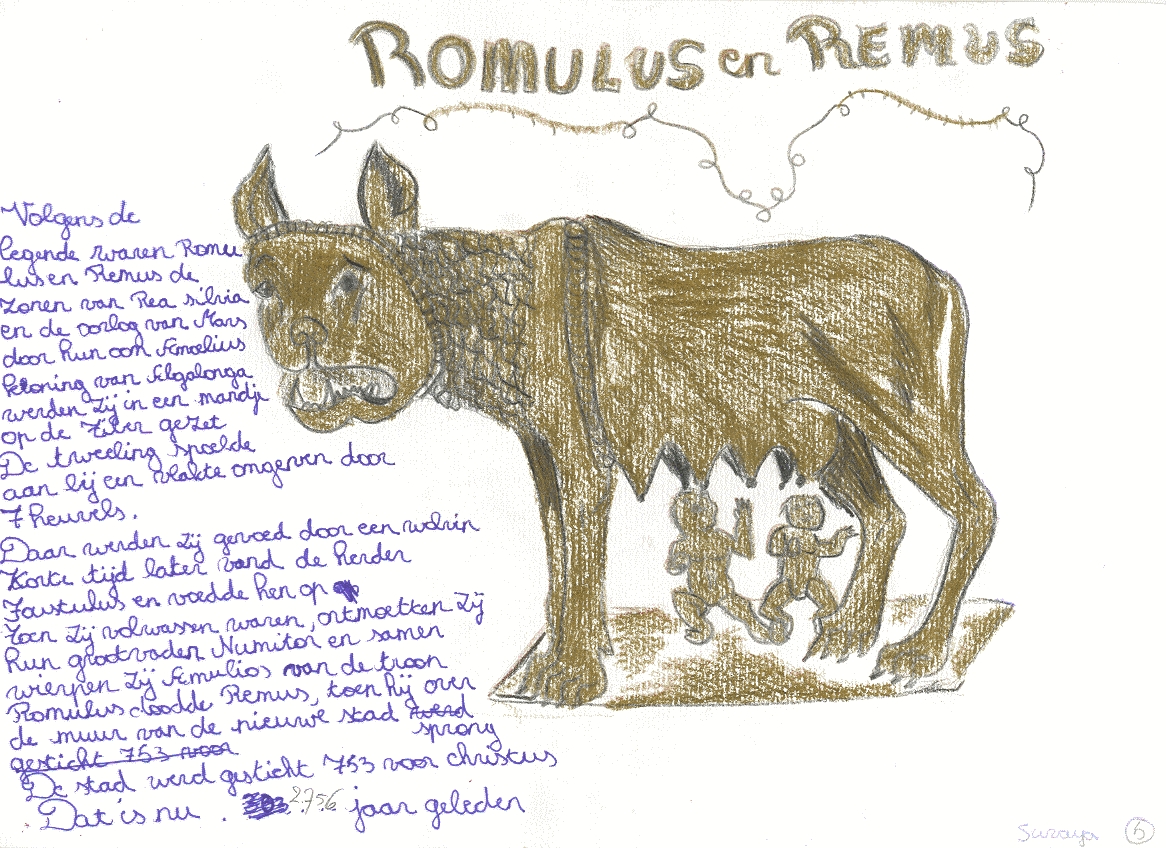 ROMULUS en REMUS
Volgens de
legende waren Romu
lus en Remus de
zonen van Rea silvia
en de oorlog van Mars
door hun oom Amoelius
koning van Algalonga
werden zij in een mandje
op de Tiber gezet
De tweeling spoelde
aan bij een vlakte omgeven door
7 heuvels.
Daar werden zij gevoed door een wolvin
Korte tijd later vand de herder
Faustulus en voedde hen op
Toen zij volwassen waren, ontmoetten zij
hun grootvader Numitor en samen
wierpen zij Amulios van de troon
Romulus doodde Remus, toen hij over
de muur van de nieuwe stad werd
sprong
gesticht 753 voor
De stad werd gesticht 753 voor christus
Dat is nu . 2.756 jaar geleden
Suraya 5